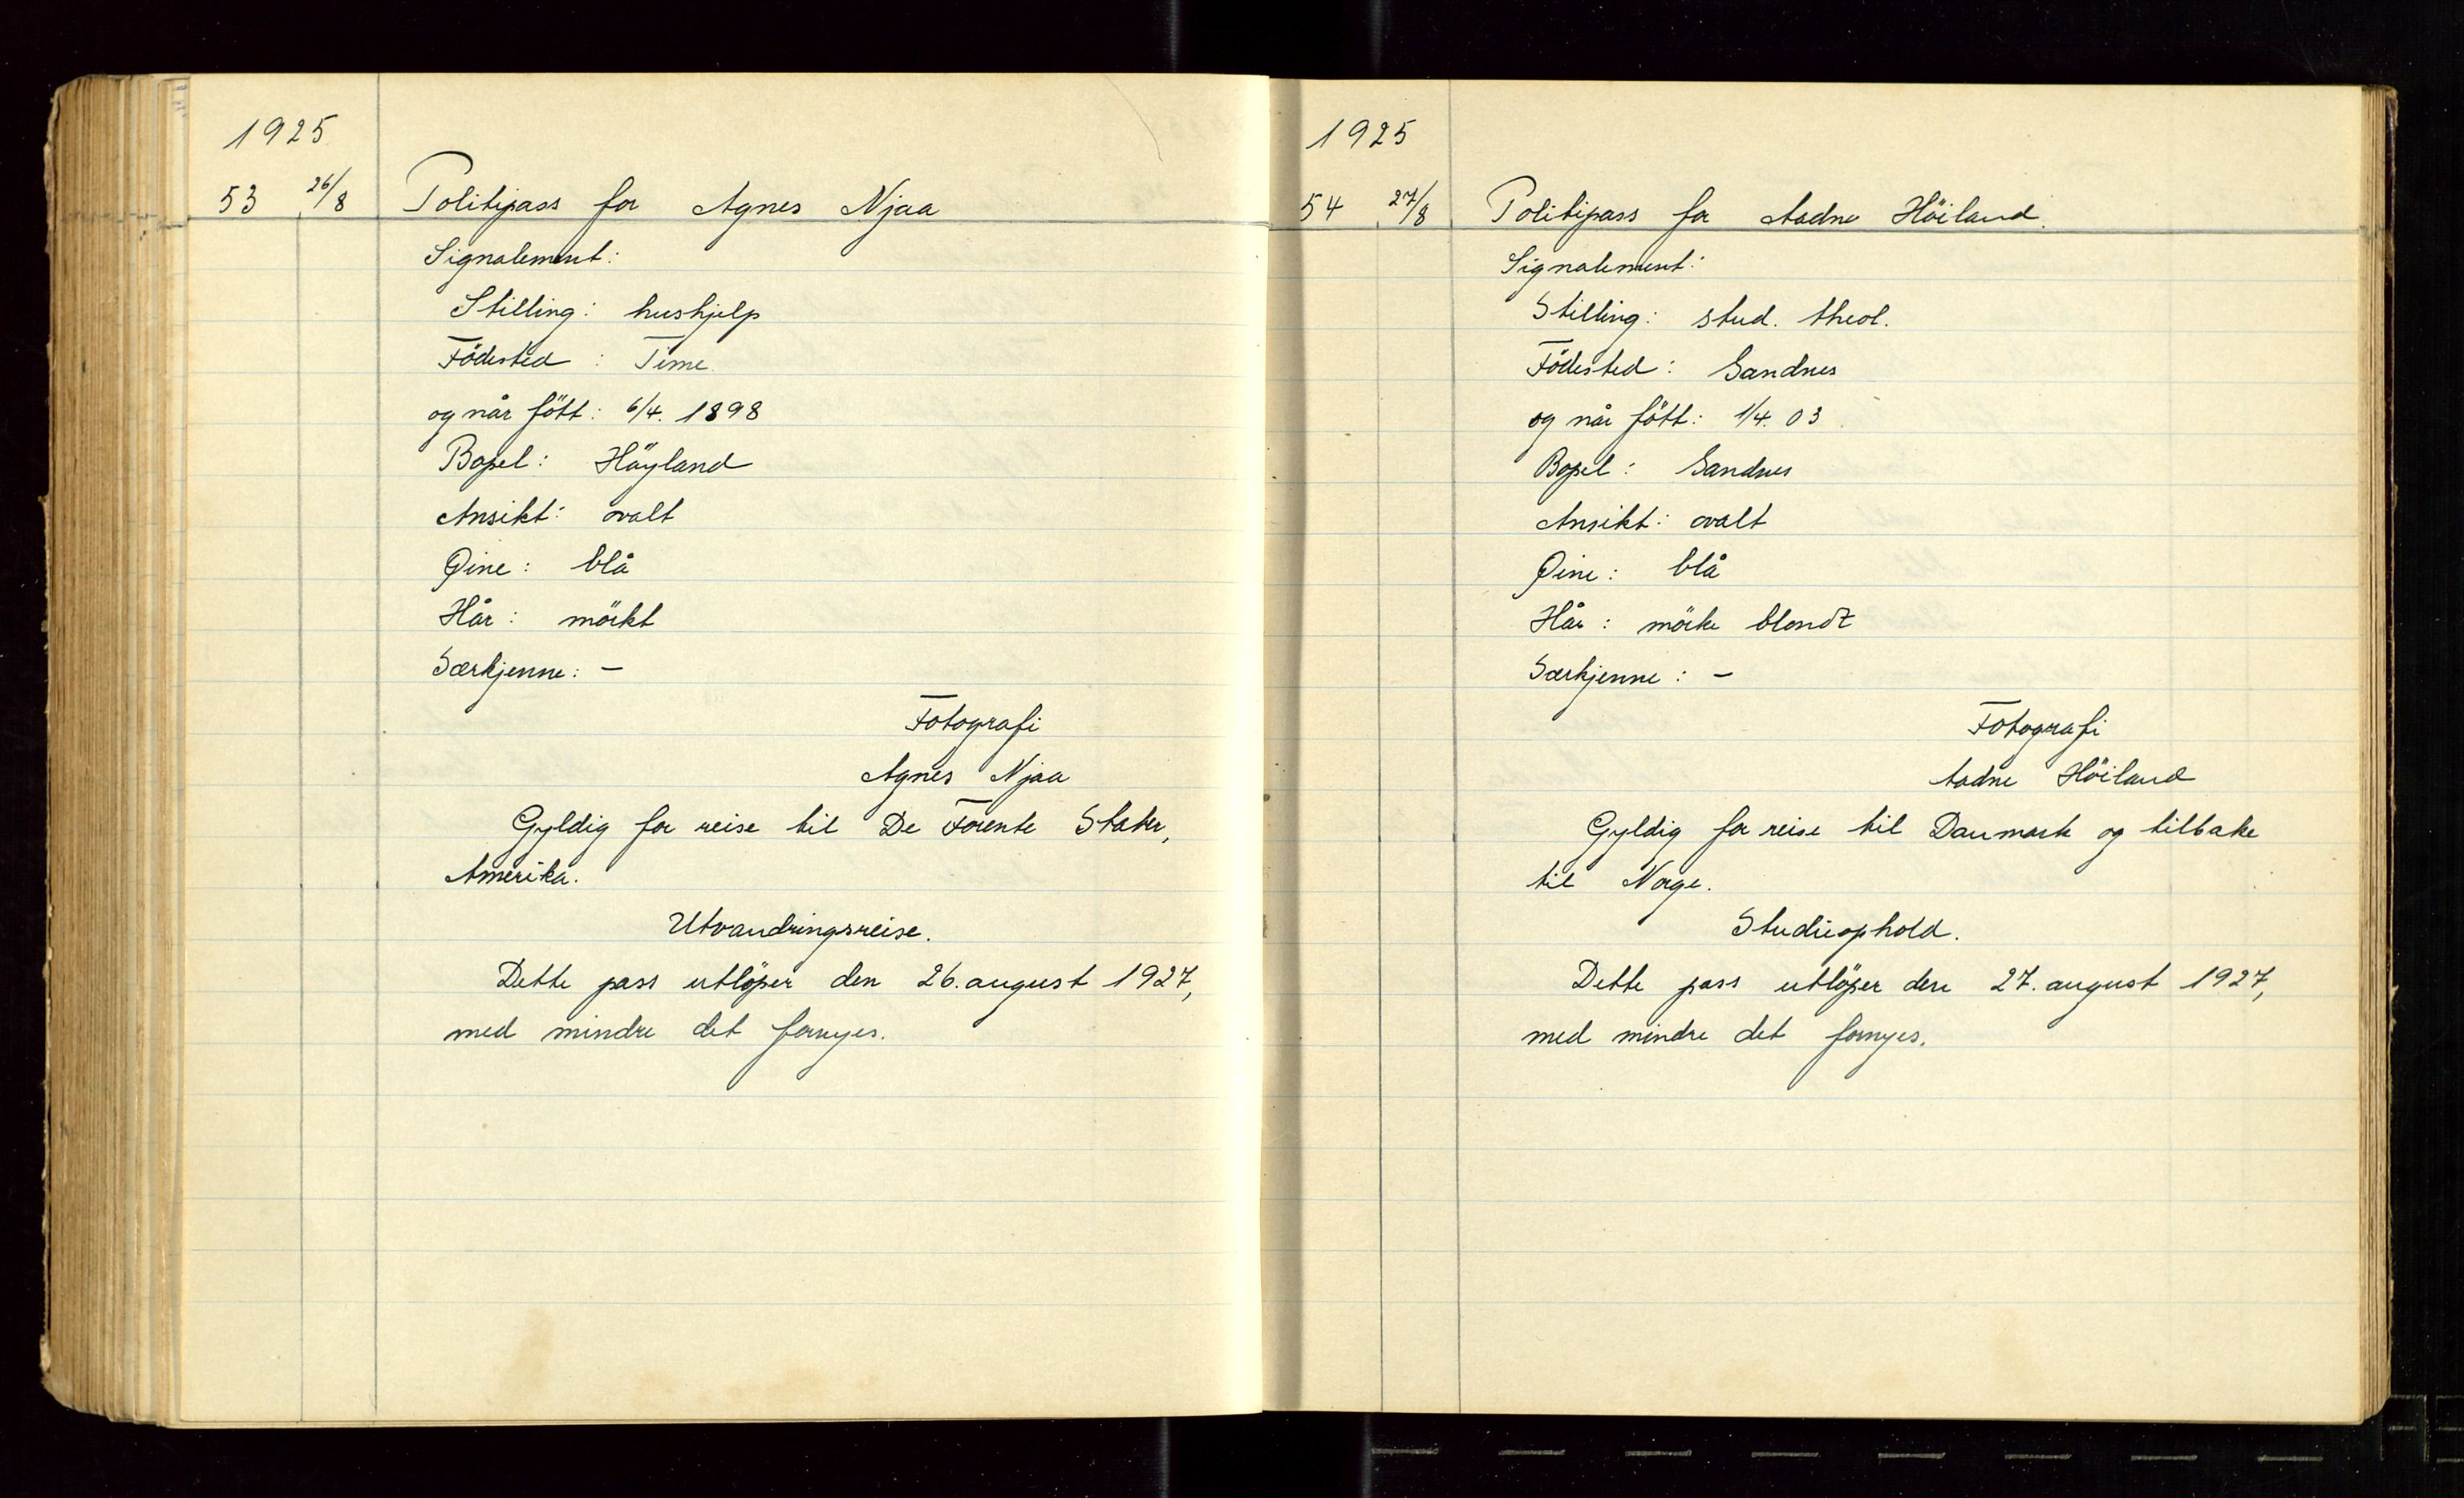 1925
53 26/8 Politipass for Agnes Njaa
Signalement:
Stilling: hushjelp
Födested: Time
og når fött: 6/4. 1898
Bopel: Höyland
Ansikt: ovalt
Øine: blå
Hår: mörkt
Særkjenne: –
Fotografi
Agnes Njaa
Gyldig for reise til De Forente Stater,
Amerika.
Utvandringsreise.
Dette pass utlöper den 26. august 1927,
med mindre det fornyes.
1925
54 27/8 Politipass for Aadne Höiland.
Signalement:
Stilling: stud. theol.
Födested: Sandnes
og når fött: 1/4. 03
Bopel: Sandnes
Ansikt: ovalt
Øine: blå
Hår: mörke blondt
Særkjenne: –
Fotografi
Aadne Höiland
Gyldig for reise til Danmark og tilbake
til Norge.
Studieophold.
Dette pass utlöper den 27. august 1927,
med mindre det fornyes.